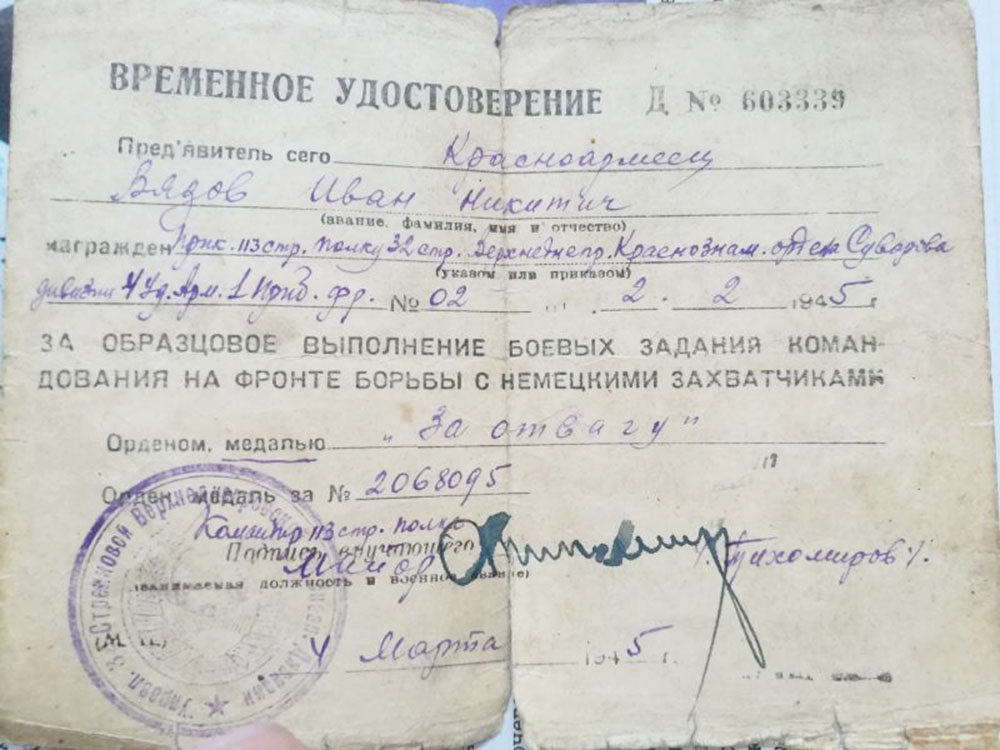 ВРЕМЕННОЕ УДОСТОВЕРЕНИЕ Д № 603339
Пред'явитель сего Красноармеец
Вядов Иван Никитич
(звание, фамилия, имя и отчество)
награжден Прик. 113 стр. полку 32 стр. Верхнеднепр. Краснознам. ордена Суворова
(указом или приказом)
дивизии 4 Уд. Арм. 1 Приб. фр. № 02 2. 2 1945 г
ЗА ОБРАЗЦОВОЕ ВЫПОЛНЕНИЕ БОЕВЫХ ЗАДАНИЯ КОМАН-
ДОВАНИЯ НА ФРОНТЕ БОРЬБЫ С НЕМЕЦКИМИ ЗАХВАТЧИКАМИ
Орденом, медалью „За отвагу"
Орден, медаль за № 2068095
Командир 113 стр. полка
Подпись вручающего
Майор /Тихомиров/.
(занимаемая должность и военное звание)
4 Марта 1945 г.